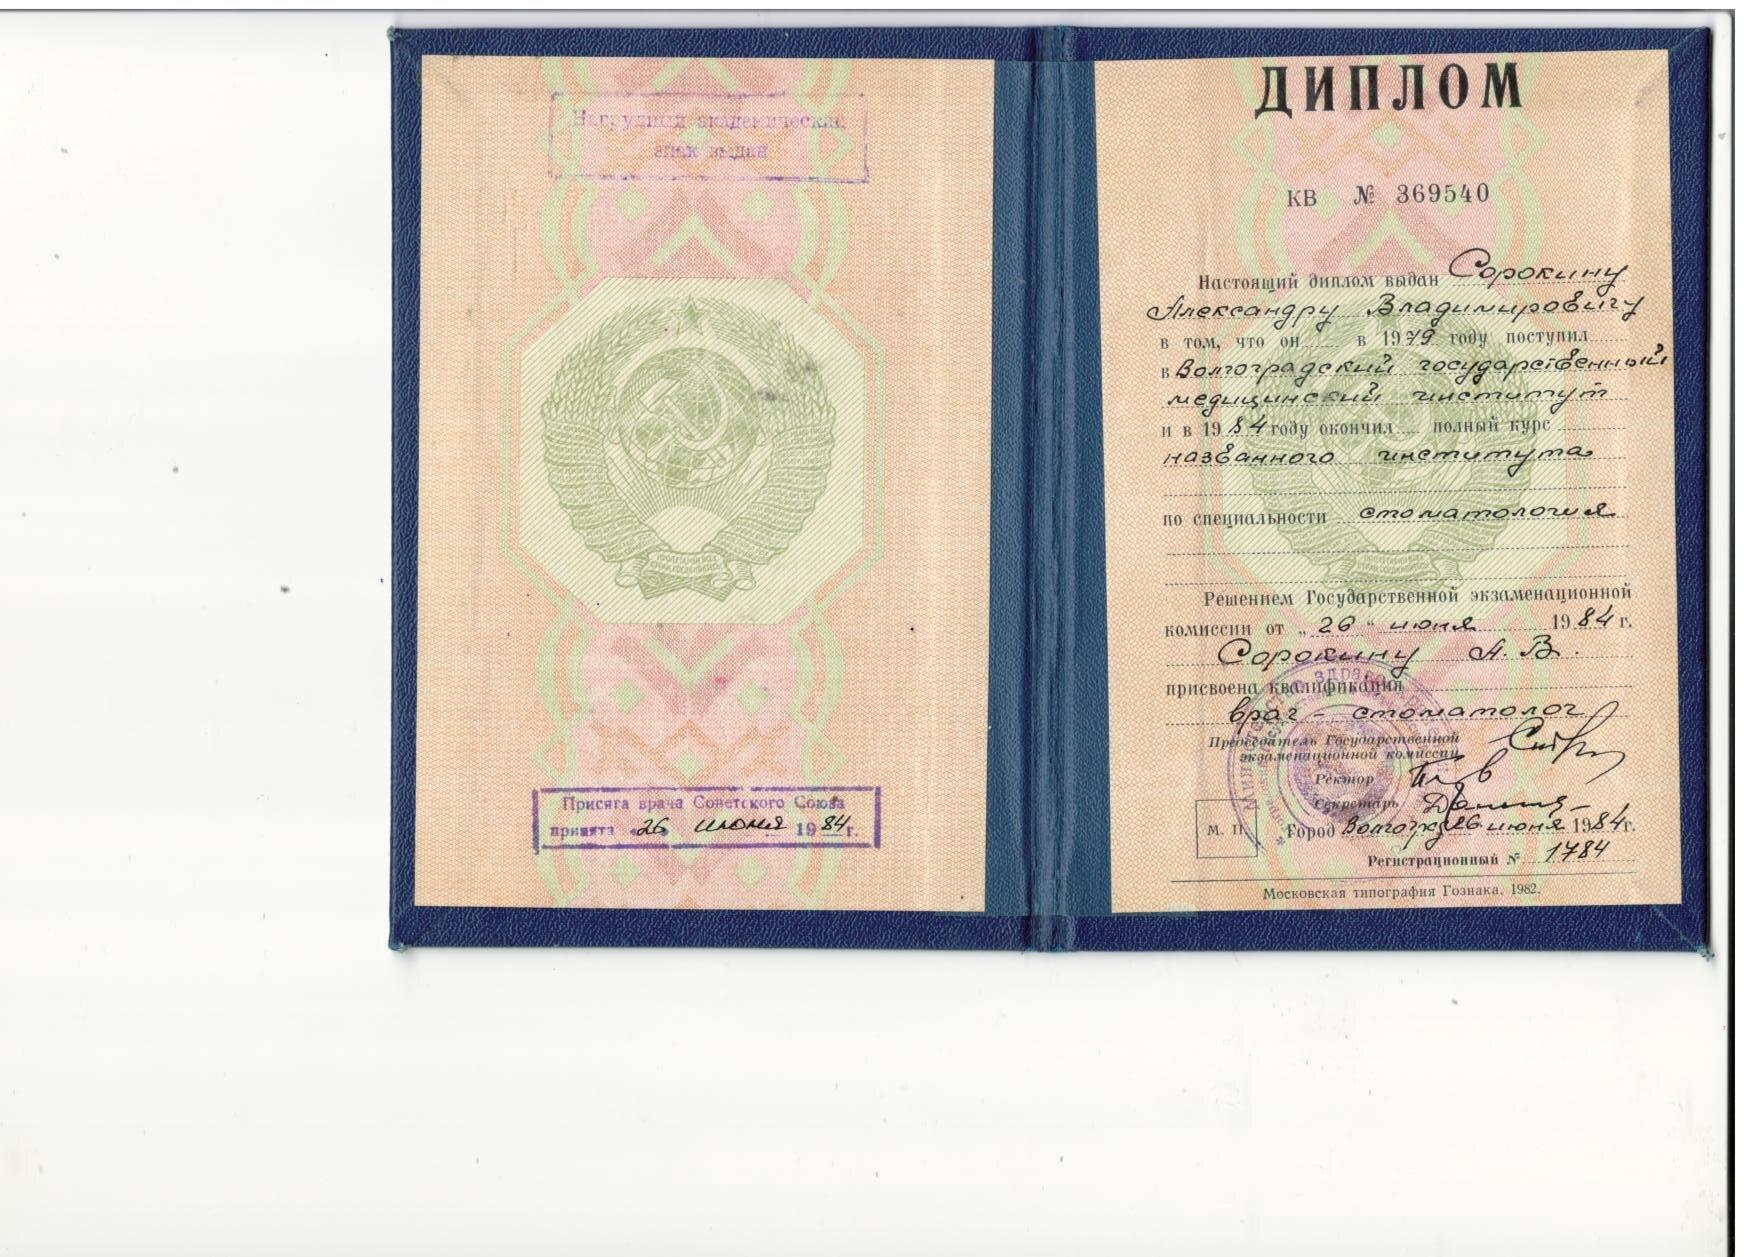 Нагрудный академический
знак выдан
Присяга врача Советского Союза
принята «26 июня 1984 г.
ДИПЛОМ
КВ № 369540
Настоящий диплом выдан Сорокину
Александру Владимировичу
в том, что он в 1979 году поступил
в Волгоградский государственный
медицинский институт
и в 1984 году окончил полный курс
названного института
по специальности стоматология
Решением Государственной экзаменационной
комиссии от „26“ июня 1984 г.
Сорокину А. В.
присвоена квалификация
врач - стоматолог
Председатель Государственной
экзаменационной комиссии
Ректор
Секретарь
М. П.
Город Волгоград 26 июня 1984 г.
Регистрационный № 1784
Московская типография Гознака. 1982.